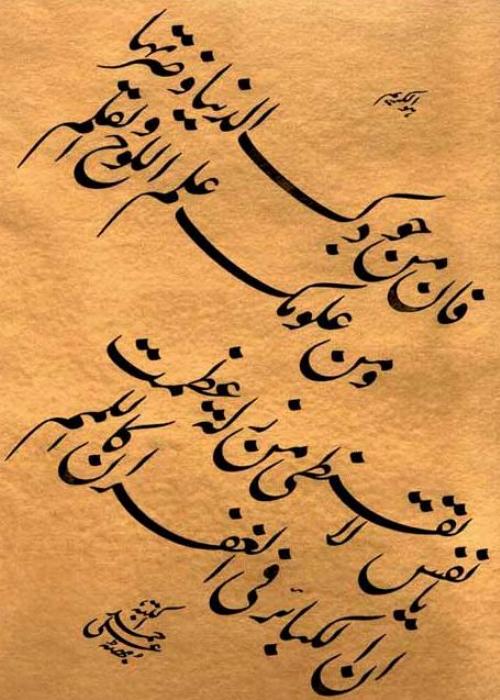 هو الكريم
فان من جودك الدنيا وضرتها
ومن علومك علم اللوح والقلم
يا نفس لا تقنطي من زلة عظمت
ان الكبائر في الغفران كاللمم
كتبه